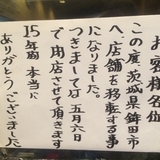 お客様各位
この度、茨城県鉾田市
へ、店舗を移転する事
になりました。
つきましては五月六日
で閉店させて頂きます
15年間本当に
ありがとうございました